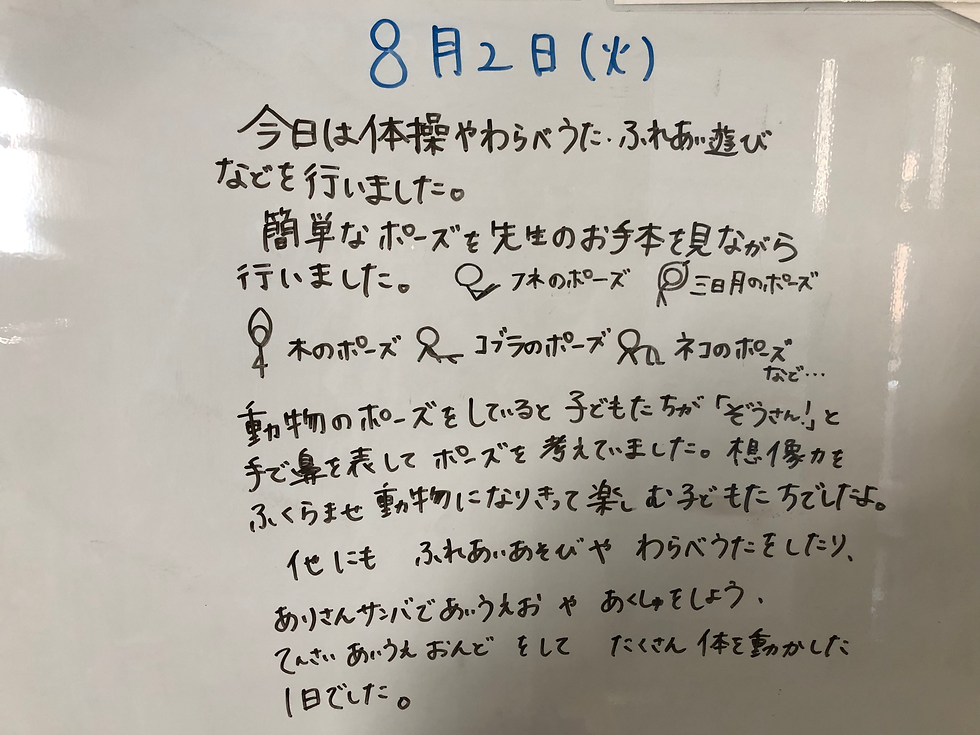 8月2日(火)
今日は体操やわらべうた・ふれあい遊び
などを行いました。
簡単なポーズを先生のお手本を見ながら
行いました。 フネのポーズ 三日月のポーズ
木のポーズ コブラのポーズ ネコのポーズ
など…
動物のポーズをしていると子どもたちが「ぞうさん!」と
手で鼻を表してポーズを考えていました。想像力を
ふくらませ動物になりきって楽しむ子どもたちでしたよ。
他にも ふれあいあそびや わらべうたをしたり、
ありさんサンバであいうえお や あくしゅをしよう、
てんさい あいうえ おんど をして たくさん 体を動かした
1日でした。